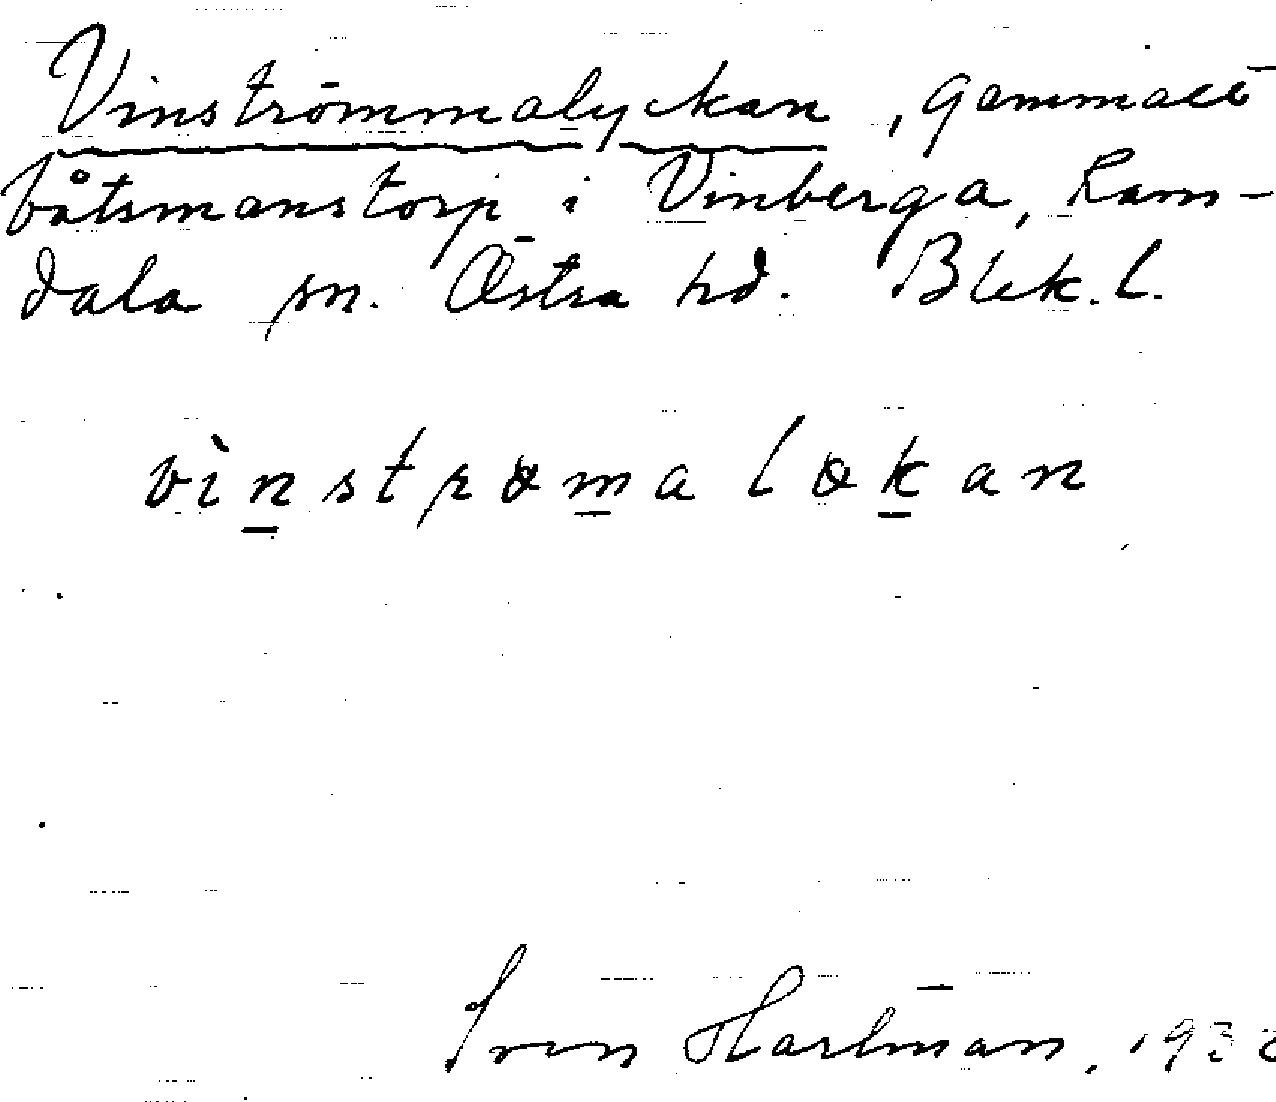 Vinströmmalyckan, gammalt
båtsmanstorp i Vinberga, Ram-
dala sn. Östra hd. Blek. l.
vìnstrømaløkan
Sven Hartman,